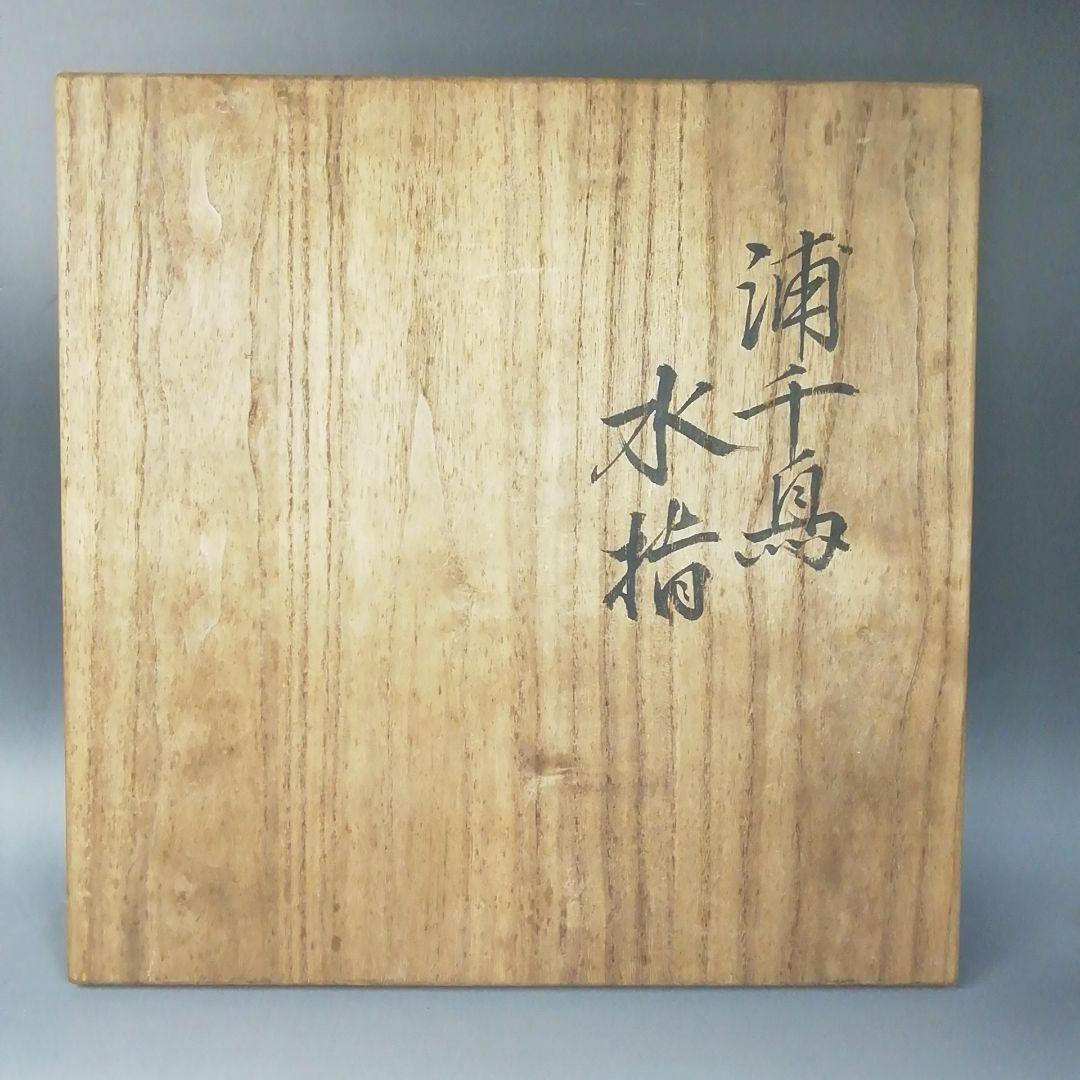 浦千鳥
水指